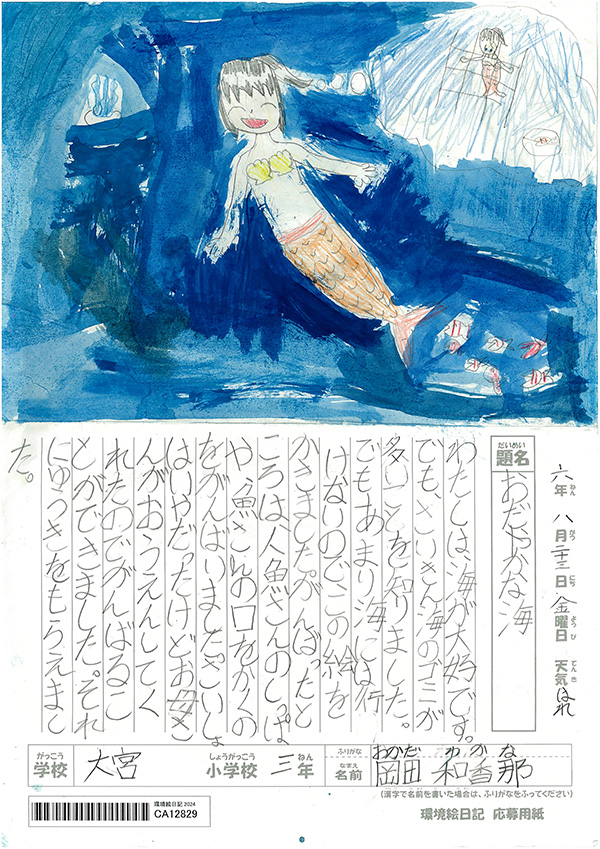 六年 八月二十三日 金曜日 天気 はれ
ねん がつ にち ようび てんき
だいめい
題名
おだやかな海
わたしは、海が大好です。
でも、さいきん海のゴミが
多いことを知りました。
でもあまり海には行
けないのでこの絵を
かきました。がんばったと
ころは、人魚ざんのしっぽ
や、魚さんの口をかくの
をがんばりました。さいしょ
はいやだったけどお母さ
んがおうえんしてく
れたのでがんばるこ
とができました。それ
にゆうきをもらえまし
た。
がっこう しょうがっこう ねん ふりがな おかだ わかな
学校 大宮 小学校 三年 なまえ 名前 岡田 和香那
(漢字で名前を書いた場合は、ふりがなをふってください)
環境絵日記 2024
CA12829
環境絵日記 応募用紙